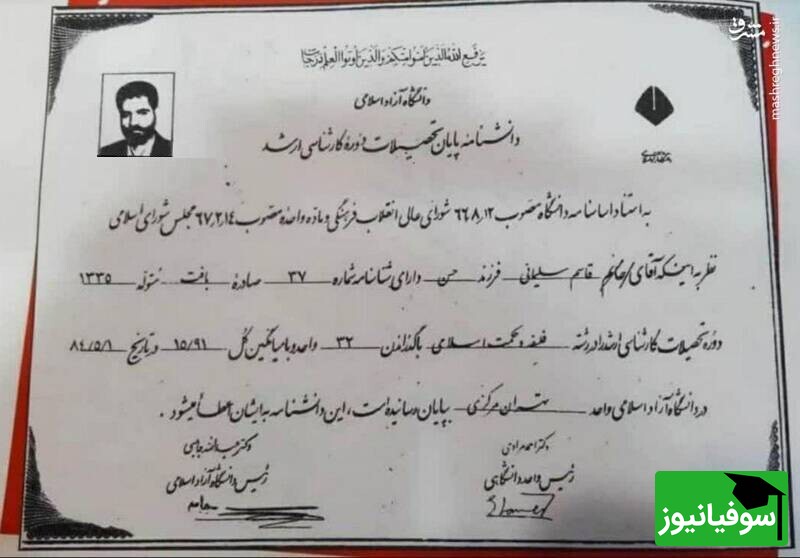 یرفع الله الذین آمنوا منکم والذین اوتوا العلم درجات
دانشگاه آزاد اسلامی
دانشنامه پایان تحصیلات دوره کارشناسی ارشد
به استناد اساسنامه دانشگاه مصوب ۶۶٫۸٫۱۲ شورای عالی انقلاب فرهنگی و ماده واحده مصوب ۶۷٫۲٫۱۴ مجلس شورای اسلامی
نظر به اینکه آقای/خانم قاسم سلیمانی فرزند حسن دارای شناسنامه شماره ۳۷ صادره بافت متولد ۱۳۳۵
دوره تحصیلات کارشناسی ارشد را در رشته فلسفه و حکمت اسلامی با گذراندن ۳۲ واحد و با میانگین کل ۱۵/۹۱ و در تاریخ ۸۴/۵/۱
در دانشگاه آزاد اسلامی واحد تهران مرکزی بپایان رسانیده است، این دانشنامه به ایشان اعطا میشود.
دکتر احمد مرادی
رئیس واحد دانشگاهی
دکتر عبدالله جاسبی
رئیس دانشگاه آزاد اسلامی
مشرق
mashreghnews.ir
سوفیانیوز